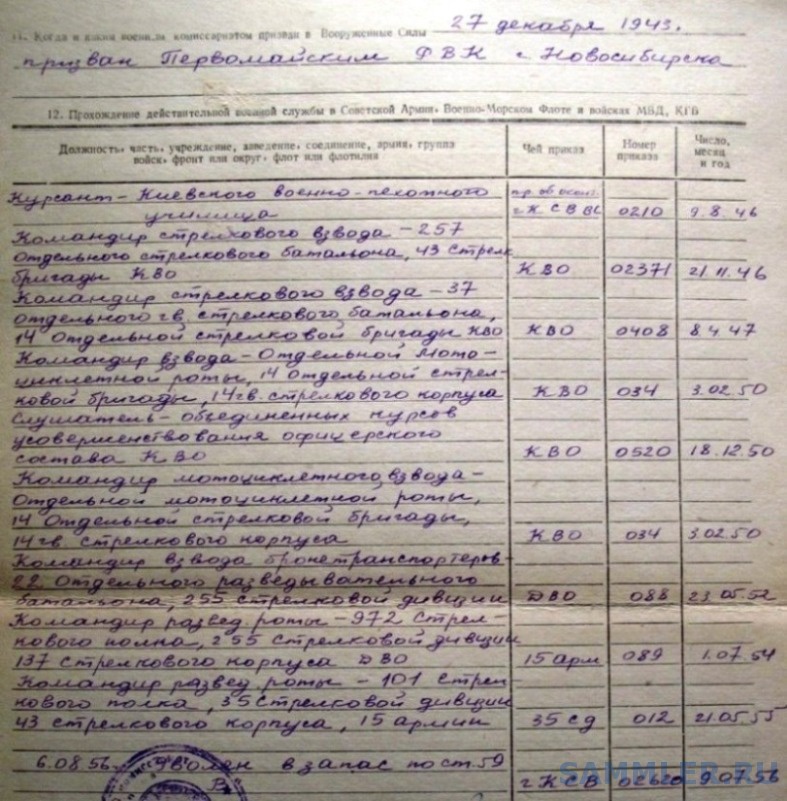 11. Когда и каким военным комиссариатом призван в Вооруженные Силы 27 декабря 1943.
призван Первомайским ФВК г. Новосибирска
12. Прохождение действительной военной службы в Советской Армии, Военно-Морском Флоте и войсках МВД, КГБ
Должность, часть, учреждение, заведение, соединение, армия, группа
войск, фронт или округ, флот или флотилия
Чей приказ
Номер
приказа
Число,
месяц
и год
Курсант - Киевского военно-пехотного
училища
гКСВ 0210 9.8.46
Командир стрелкового взвода - 257
отдельного стрелкового батальона, 43 стрелк
бригады КВО КВО 02371 21.11.46
Командир стрелкового взвода - 37
отдельного гв. стрелкового батальона,
14 отдельной стрелковой бригады КВО КВО 0408 8.4.47
Командир взвода - Отдельной мото-
циклетной роты, 14 отдельной стрел-
ковой бригады, 14 гв. стрелкового корпуса КВО 034 3.02.50
Слушатель - объединенных курсов
усовершенствования офицерского
состава КВО КВО 0520 18.12.50
Командир мотоциклетного взвода -
Отдельной мотоциклетной роты,
14 Отдельной стрелковой бригады,
14 гв. стрелкового корпуса КВО 034 3.02.50
Командир взвода бронетранспортеров -
22 Отдельного разведывательного
батальона, 255 стрелковой дивизии ДВО 088 23.05.52
Командир развед. роты - 972 Стрел-
кового полка, 255 Стрелковой дивизии
137 стрелкового корпуса ДВО 15 арм 089 1.07.54
Командир развед роты - 101 Стрел-
кового полка, 35 Стрелковой дивизии
43 стрелкового корпуса, 15 армии 35 сд 012 21.05.55
6.08.56. Уволен в запас по ст. 59
гКСВ 02620 9.07.56
SAMMLER.RU